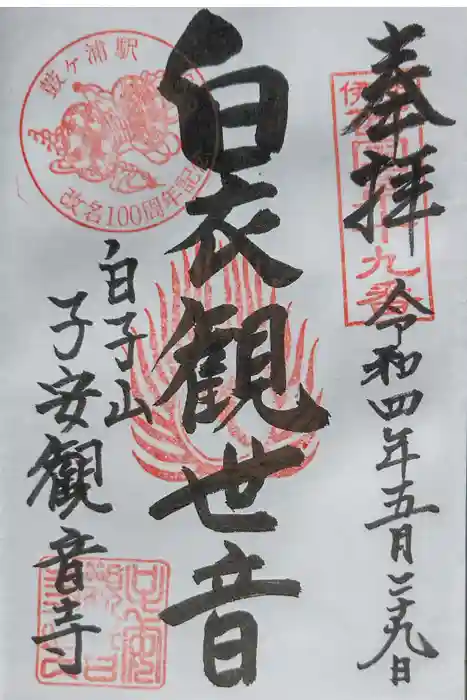 奉拝
令和四年五月二十九日
白衣観世音
白子山
子安観音寺
鼓ヶ浦駅
改名100周年記念